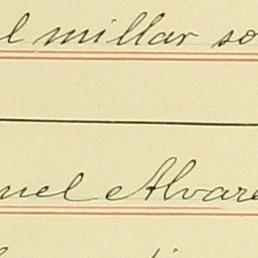 l millar so
nuel Alvare